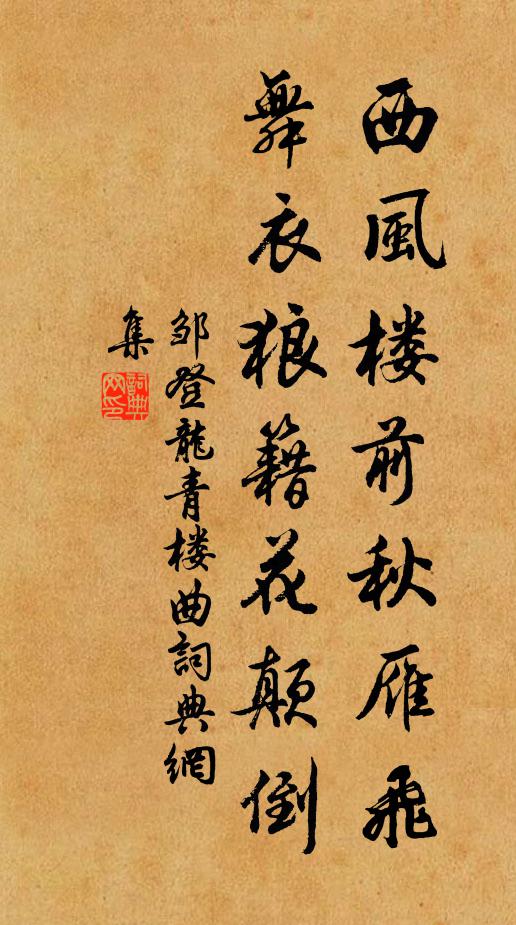 西風楼前秋雁飛
舞衣狼籍花顛倒
邹登龍青楼曲詞典網
集
詞典網印